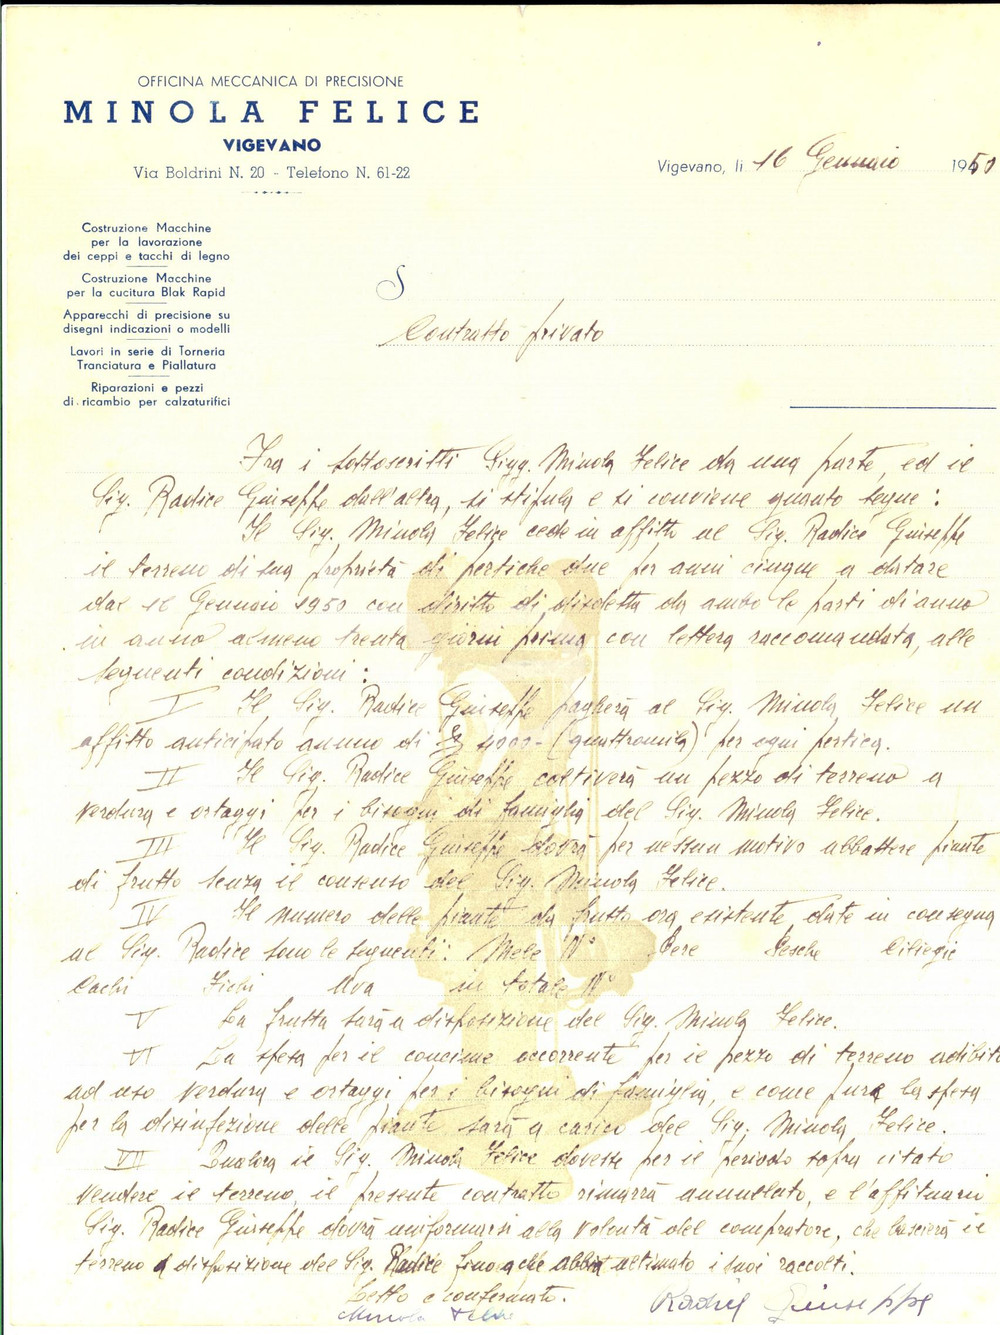 OFFICINA MECCANICA DI PRECISIONE
MINOLA FELICE
VIGEVANO
Via Boldrini N. 20 - Telefono N. 61-22
Vigevano, li 16 Gennaio 1950
Costruzione Macchine
per la lavorazione
dei ceppi e tacchi di legno
Costruzione Macchine
per la cucitura Blak Rapid
Apparecchi di precisione su
disegni indicazioni o modelli
Lavori in serie di Torneria
Tranciatura e Piallatura
Riparazioni e pezzi
di ricambio per calzaturifici
S
Contratto privato
Fra i sottoscritti Sigg. Minola Felice da una parte, ed il
Sig. Radice Giuseppe dall'altra, si stipula e si conviene quanto segue:
Il Sig. Minola Felice cede in affitto al Sig. Radice Giuseppe
il terreno di sua proprietà di pertiche due per anni cinque a datare
dal 16 Gennaio 1950 con diritto di disdetta da ambo le parti di anno
in anno almeno trenta giorni prima con lettera raccomandata, alle
seguenti condizioni:
I Il Sig. Radice Giuseppe pagherà al Sig. Minola Felice un
affitto anticipato annuo di £ 4000- (quattromila) per ogni pertica.
II Il Sig. Radice Giuseppe coltiverà un pezzo di terreno a
verdura e ortaggi per i bisogni di famiglia del Sig. Minola Felice.
III Il Sig. Radice Giuseppe dovrà per nessun motivo abbattere piante
di frutto senza il consenso del Sig. Minola Felice.
IV Il numero delle piante da frutto ora esistente date in consegna
al Sig. Radice sono le seguenti: Mele N° Pere Pesche Ciliegie
Cachi Fichi Uva in totale N°
V La frutta sarà a disposizione del Sig. Minola Felice.
VI La spesa per il concime occorrente per il pezzo di terreno adibito
ad uso verdura e ortaggi per i bisogni di famiglia, e come pure la spesa
per la disinfezione delle piante sarà a carico del Sig. Minola Felice.
VII Qualora il Sig. Minola Felice dovesse per il periodo sopra citato
vendere il terreno, il presente contratto rimarrà annullato, e l'affittuario
Sig. Radice Giuseppe dovrà uniformarsi alla volontà del compratore, che lascierà il
terreno a disposizione del Sig. Radice fino a che abbia ultimato i suoi raccolti.
Letto e confermato.
Minola Felice Radice Giuseppe